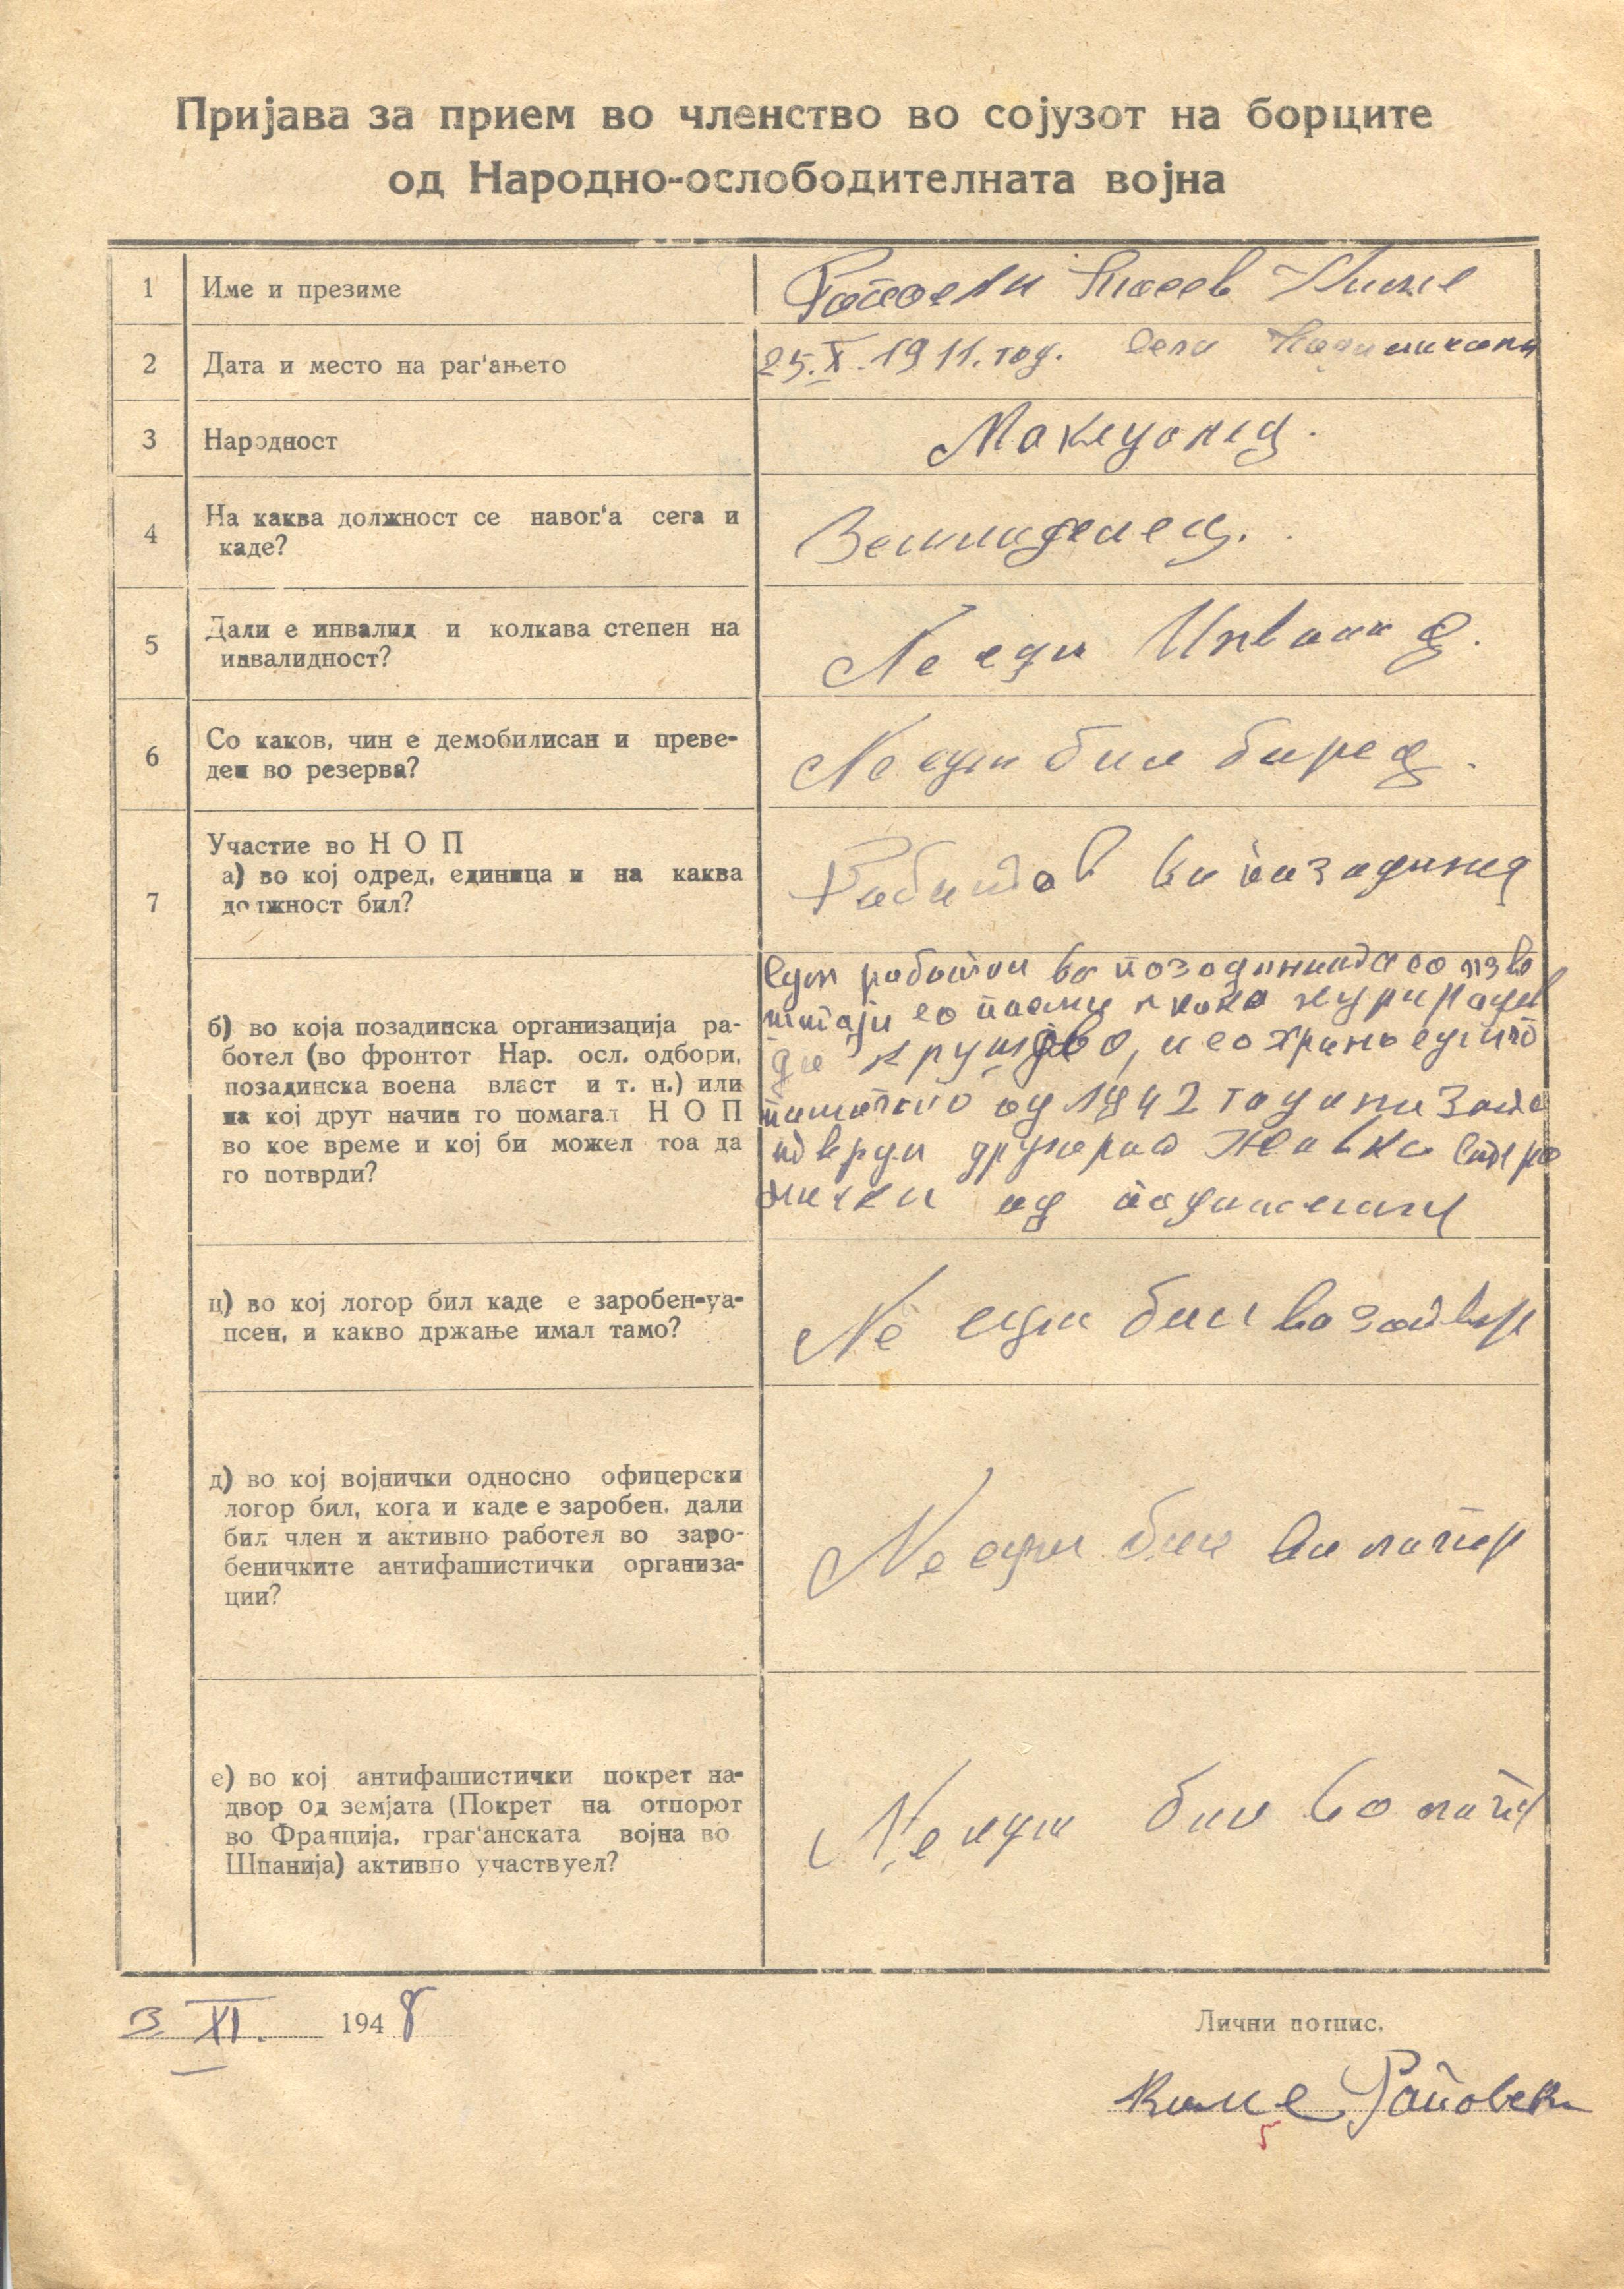 Пријава за прием во членство во сојузот на борците
од Народно-ослободителната војна
1
Име и презиме
Тасев
2
Дата и место на раг'ањето
25. X. 1911. год. Село
3
Народност
Македонец.
4
На каква должност се навог'а сега и
каде?
Земмоделец.
5
Дали е инвалид и колкава степен на
инвалидност?
Не еди Инвалид.
6
Со каков, чин е демобилисан и преве-
ден во резерва?
Не еди бил
7
Участие во Н О П
а) во кој одред, единица и на каква
должност бил?
Работов во позадина
б) во која позадинска организација ра-
ботел (во фронтот Нар. осл. одбори,
позадинска воена власт и т. н.) или
на кој друг начин го помагал Н О П
во кое време и кој би можел тоа да
го потврди?
работои во позадината со
со
Крушево, и со храна
од 1942 година
другарот Живко
од
ц) во кој логор бил каде е заробен-уа-
псен, и какво држање имал тамо?
Не еди бил во затвор
д) во кој војнички односно офицерски
логор бил, кога и каде е заробен, дали
бил член и активно работел во заро-
беничките антифашистички организа-
ции?
Не еди бил во логор
е) во кој антифашистички покрет на-
двор од земјата (Покрет на отпорот
во Франција, граг'анската војна во
Шпанија) активно участвуел?
Не еди бил во
3 XI. 1948
Лични потпис.